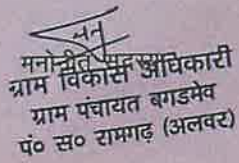 ग्राम विकास अधिकारी
ग्राम पंचायत बगडमेव
पं० स० रामगढ़ (अलवर)